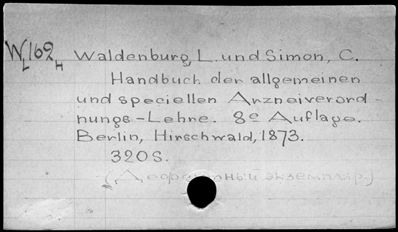 WL162H Waldenburg, L. und Simon, C.
Handbuch der allgemeinen
und speciellen Arzneiverord-
nungs-Lehre. 8e Auflage.
Berlin, Hirschwald, 1873.
320S.
экземпляр.)